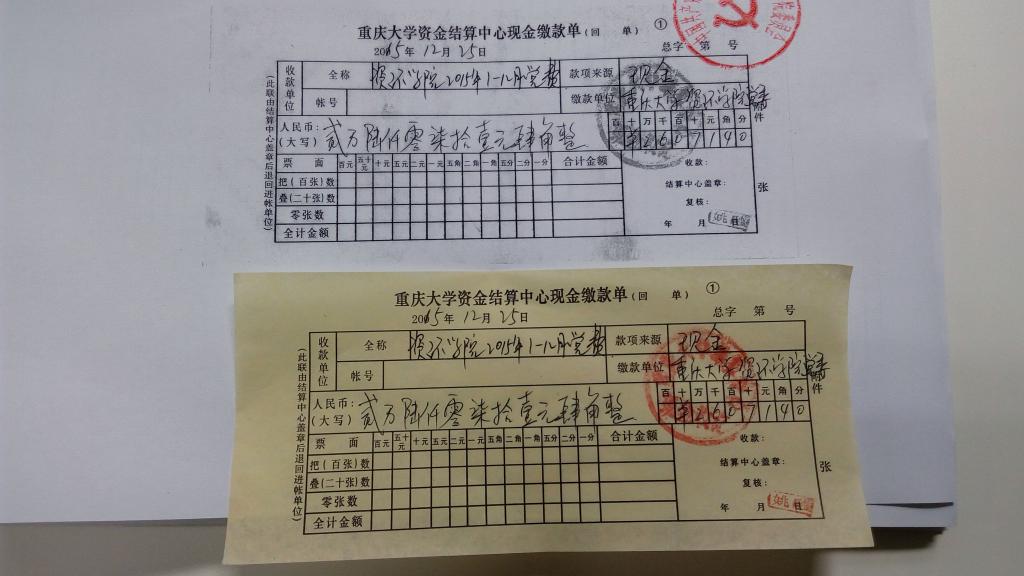 重庆大学资金结算中心现金缴款单(回 单) ①
2015年12月25日 总字 第 号
收款单位 全称 资环学院2015年1-12月党费 款项来源 现金
帐号 缴款单位 重庆大学资环学院党委
人民币:(大写) 贰万陆仟零柒拾壹元肆角整 百十万千百十元角分 ¥2607140
附件 张
票 面 百元 五十元 十元 五元 二元 一元 五角 二角 一角 五分 二分 一分 合计金额 收款:
把(百张)数 结算中心盖章:
叠(二十张)数 复核:
零张数 年 月 日
全计金额
(此联由结算中心盖章后退回进帐单位)
重庆大学资金结算中心现金缴款单(回 单) ①
2015年12月25日 总字 第 号
收款单位 全称 资环学院2015年1-12月党费 款项来源 现金
帐号 缴款单位 重庆大学资环学院党委
人民币:(大写) 贰万陆仟零柒拾壹元肆角整 百十万千百十元角分 ¥2607140
附件 张
票 面 百元 五十元 十元 五元 二元 一元 五角 二角 一角 五分 二分 一分 合计金额 收款:
把(百张)数 结算中心盖章:
叠(二十张)数 复核:
零张数 年 月 日
全计金额
(此联由结算中心盖章后退回进帐单位)